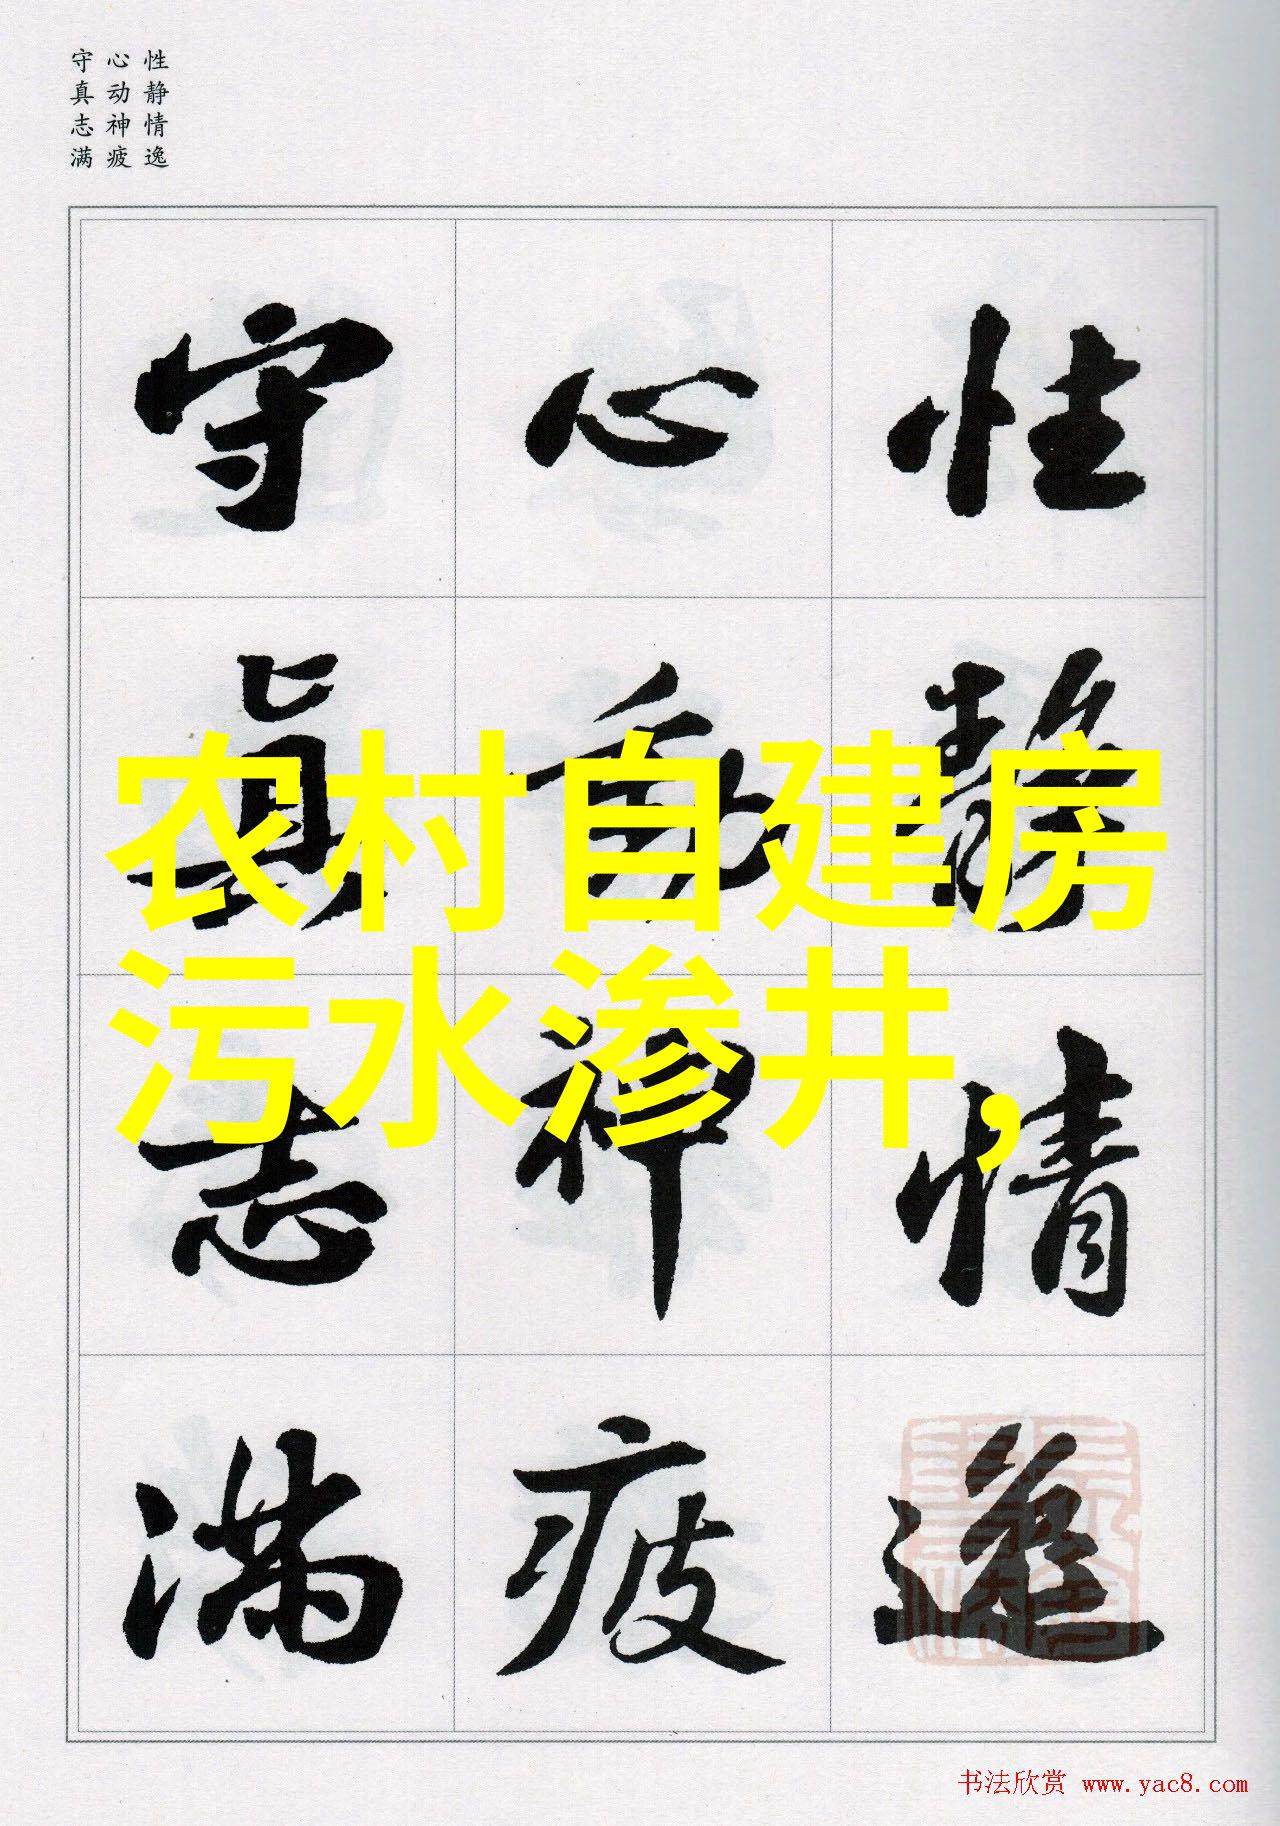 性静情逸
心动神疲
守真志满
性静情逸
心動神疲
守真志满
农村自建房
污水渗井,
书法欣赏 www.yac8.com